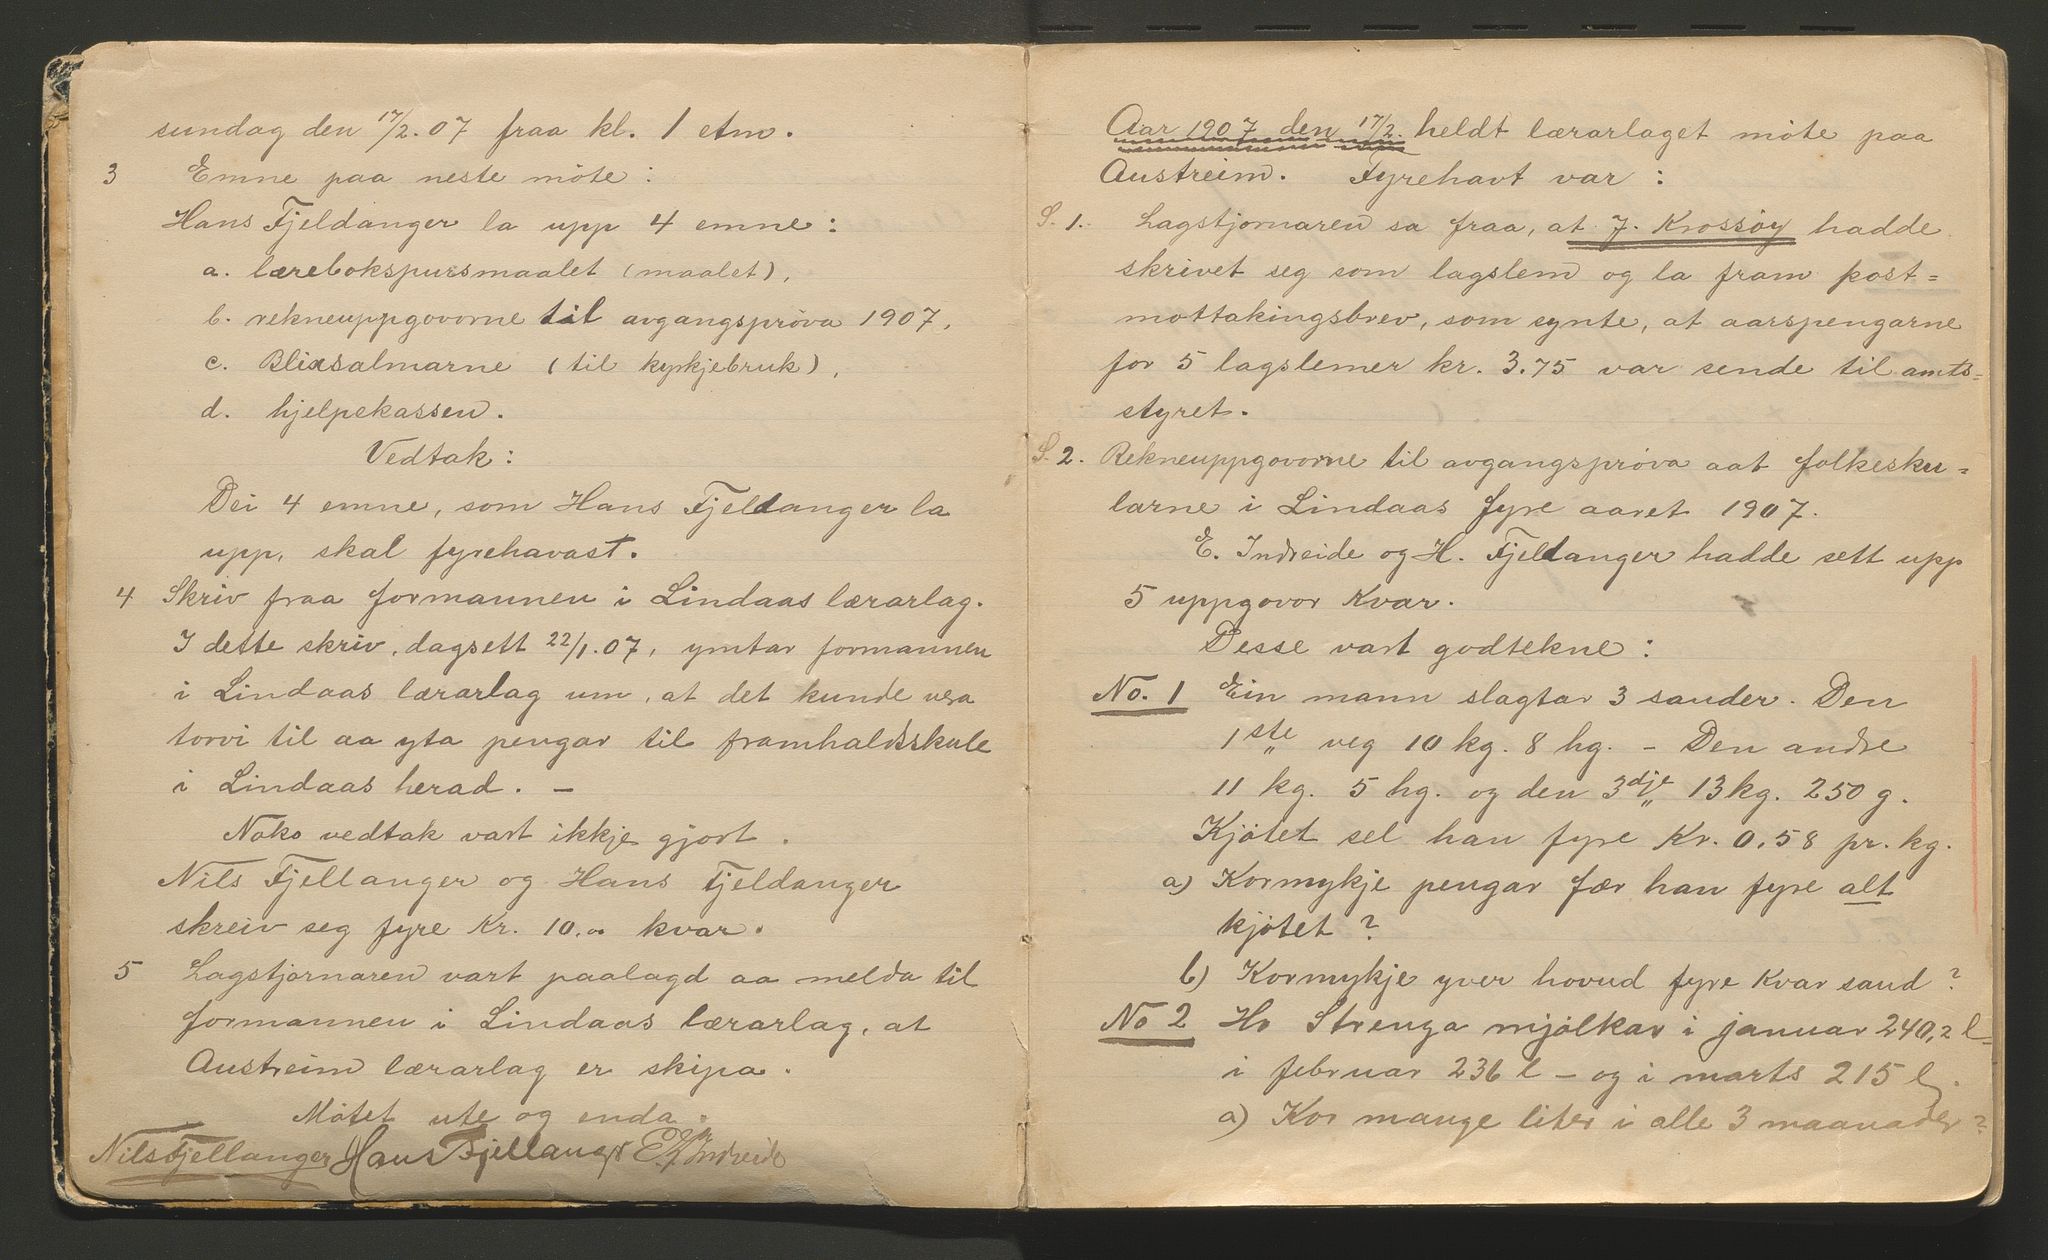 sundag den 17/2.07 fraa kl. 1 etm.
3 Emne paa neste möte:
Hans Fjeldanger la upp 4 emne:
a. lærebokspursmaalet (maalet),
b. rekneuppgovorne til avgangspröva 1907,
c. Blixsalmarne (til kyrkjebruk),
d. hjelpekassen.
Vedtak:
Dei 4 emne, som Hans Fjeldanger la
upp, skal fyrehavast.
4 Skriv fraa formannen i Lindaas lærarlag.
I dette skriv, dagsett 22/1.07, ymtar formannen
i Lindaas lærarlag um, at det kunde vera
torvi til aa yta pengar til framhaldsskule
i Lindaas herad. —
Noko vedtak vart ikkje gjort.
Nils Fjellanger og Hans Fjeldanger
skreiv seg fyre Kr. 10.00 kvar.
5 Lagstjornaren vart paalagd aa melda til
formannen i Lindaas lærarlag, at
Austreim lærarlag er skipa.
Mötet ute og enda.
Nils Fjellanger Hans Fjellanger Indreide
Aar 1907 den 17/2. heldt lærarlaget möte paa
Austreim. Fyrehavt var:
S. 1. Lagstjornaren sa fraa, at J. Krossöy hadde
skrivet seg som lagslem og la fram post=
mottakingsbrev, som synte, at aarspengarne
for 5 lagslemer kr. 3.75 var sende til amts=
styret.
S. 2. Rekneuppgovorne til avgangspröva aat folkesku=
larne i Lindaas fyre aaret 1907.
E. Indreide og H. Fjeldanger hadde sett upp
5 uppgovor kvar.
Desse vart godtekne:
No. 1 Ein mann slagtar 3 sauder. Den
1ste veg 10 kg. 8 hg. – Den andre
11 kg. 5 hg. og den 3dje 13 kg. 250 g.
Kjötet sel han fyre Kr. 0,58 pr. kg.
a) Kormykje pengar fær han fyre alt
kjötet?
b) Kormykje yver hovud fyre kvar saud?
No 2 Ho Strenga mjölkar i januar 240,2 l –
i februar 236 l – og i marts 215 l.
a) Kor mange liter i alle 3 maanader?